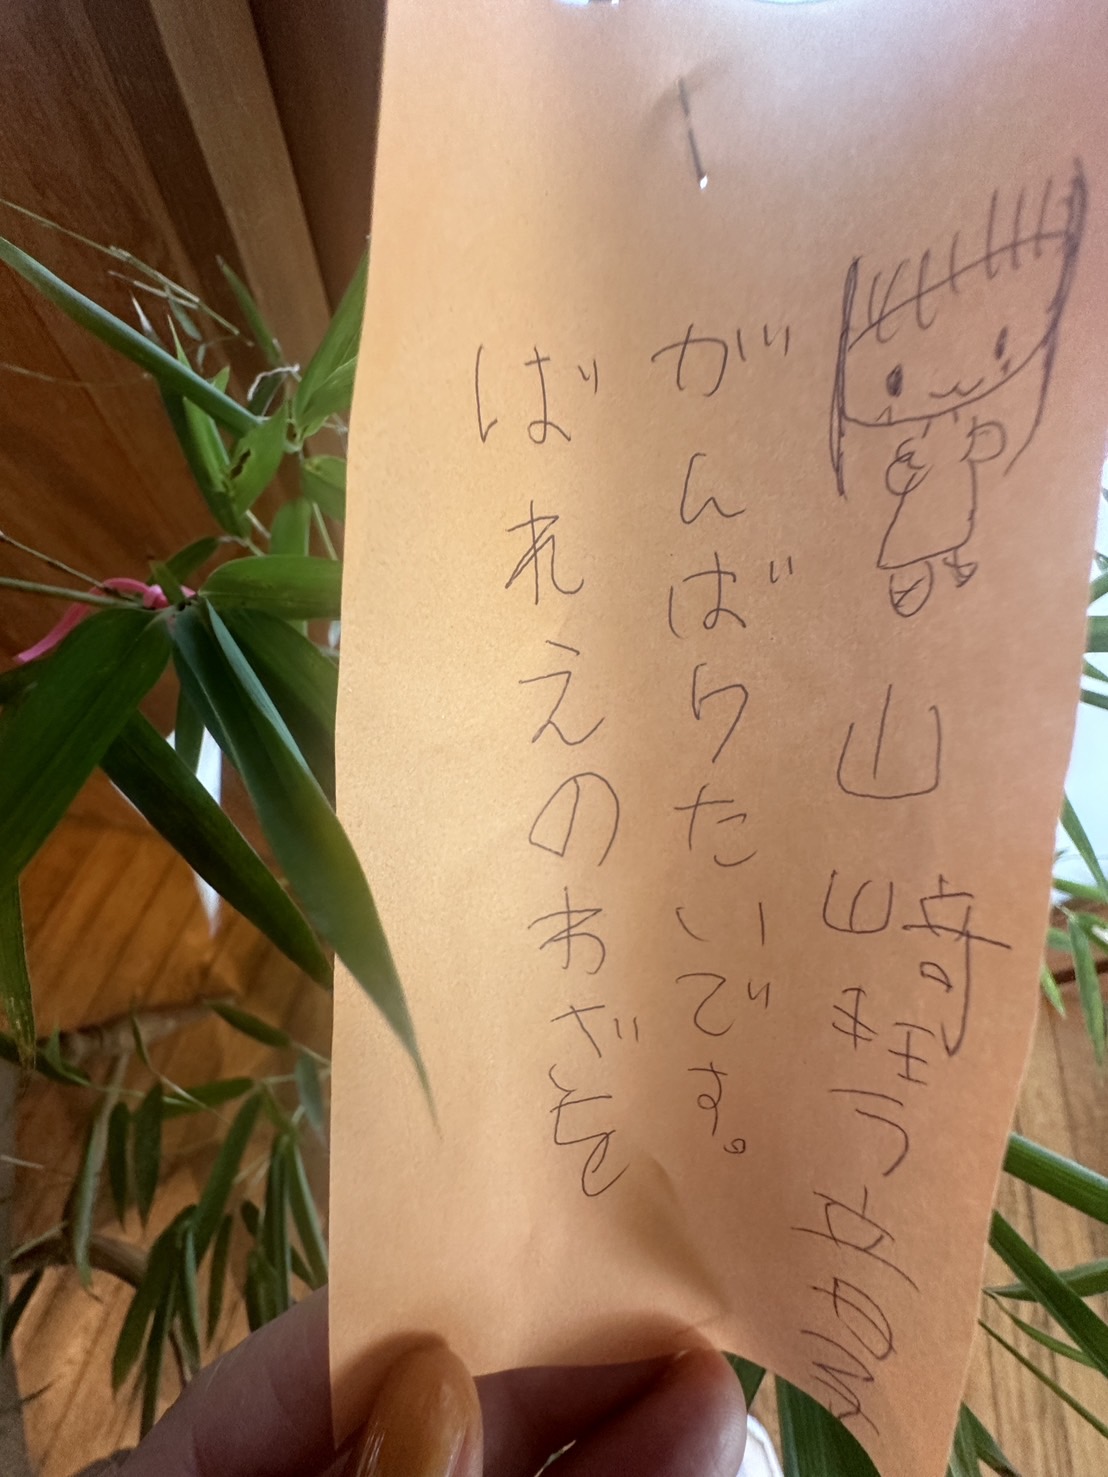 ばれえのわざを
がんばりたいです。
山崎